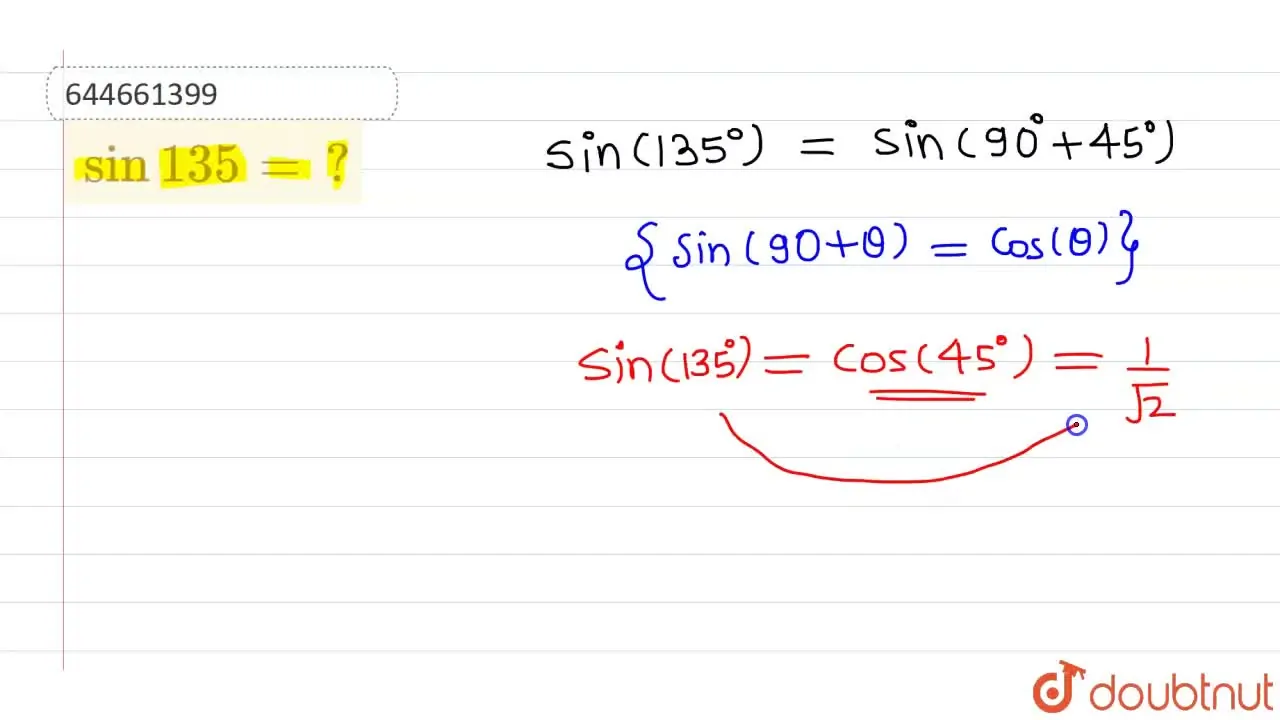 644661399
sin 135 = ?
sin(135°) = sin(90°+45°)
{sin(90+θ) = cos(θ)}
sin(135°) = cos(45°) = 1/√2
doubtnut